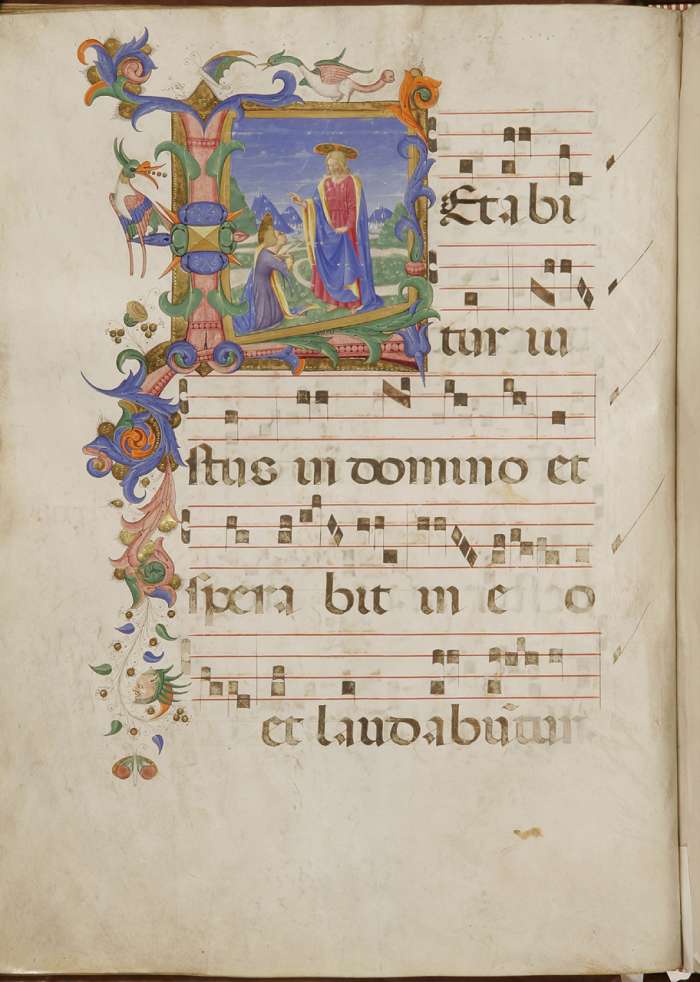 LEtabi
tur iu
stus in domino et
spera bit in e o
et laudabūtur